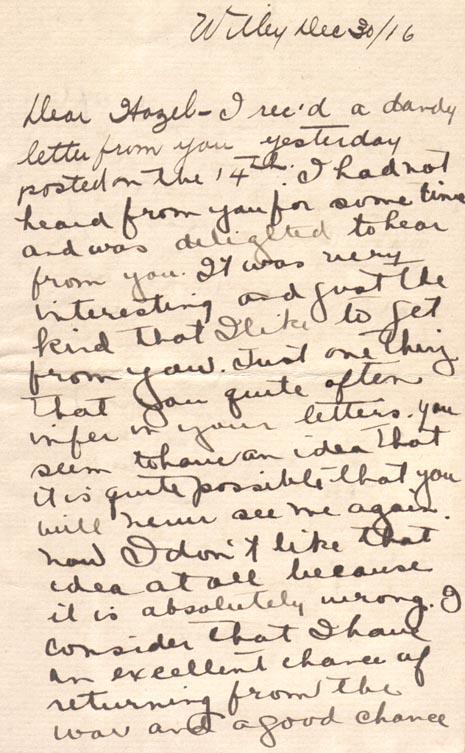 Witley Dec 30/16
Dear Hazel - I rec'd a dandy
letter from you yesterday
posted on the 14th. I had not
heard from you for some time
and was delighted to hear
from you. It was very
interesting and just the
kind that I like to get
from you. Just one thing
that you quite often
infer in your letters. you
seem to have an idea that
it is quite possible that you
will never see me again.
now I don't like that
idea at all because
it is absolutely wrong. I
consider that I have
an excellent chance of
returning from the
war and a good chance